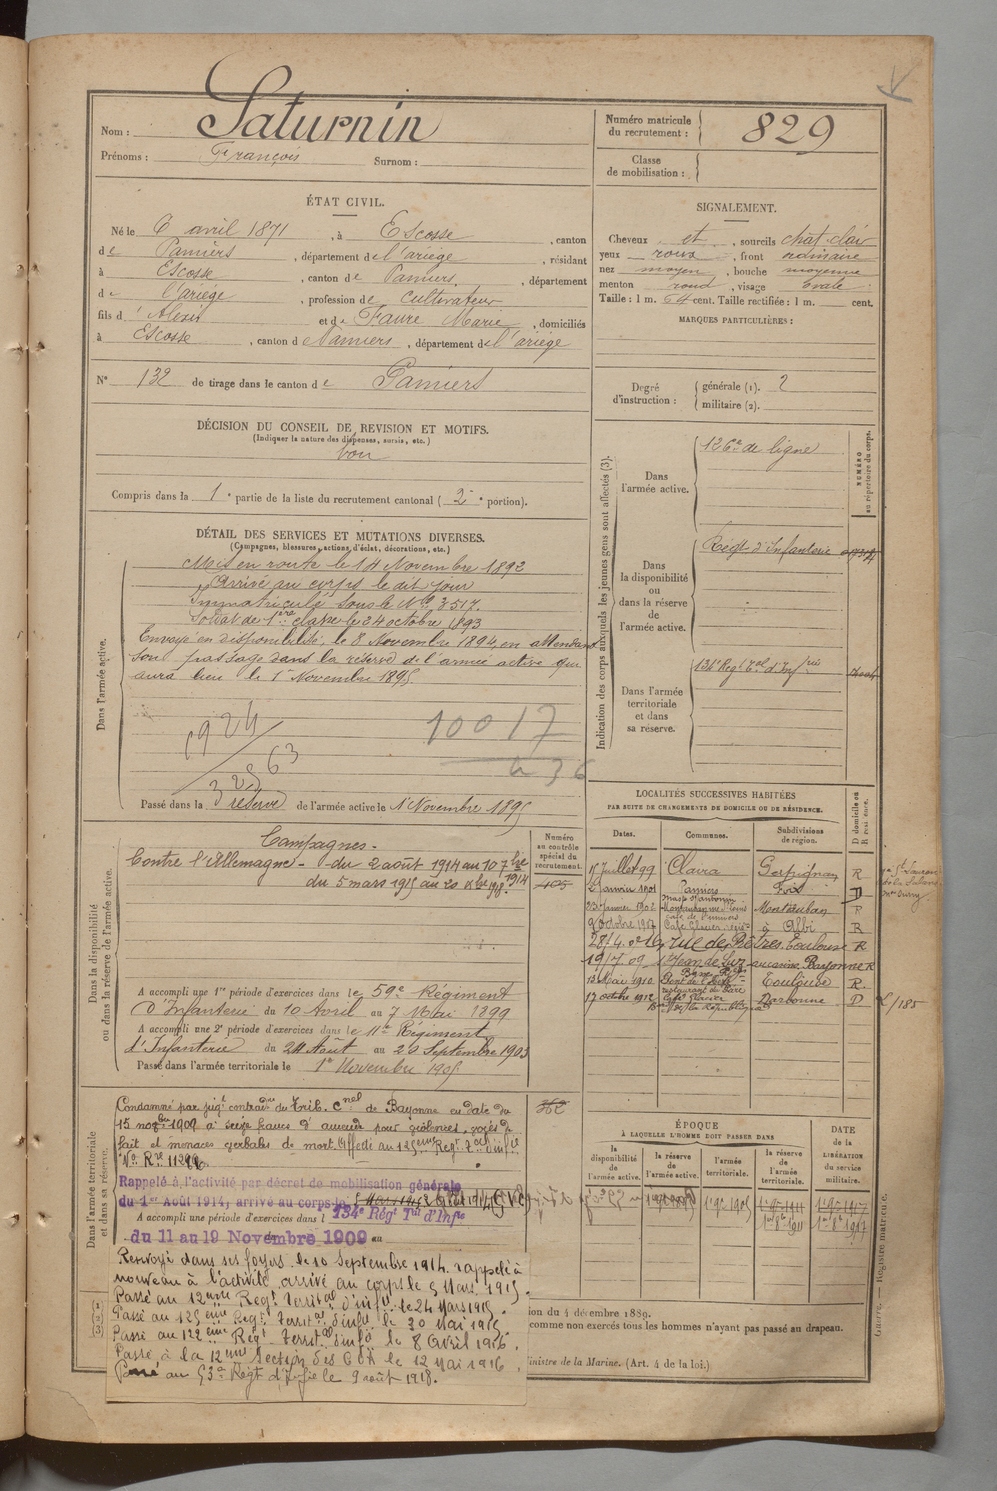 Nom : Saturnin
Prénoms : François Surnom :
Numéro matricule du recrutement : 829
Classe de mobilisation :
ÉTAT CIVIL.
Né le 6 avril 1871, à Escosse, canton
de Pamiers, département de l'ariège, résidant
à Escosse, canton de Pamiers, département
de l'ariège, profession de cultivateur
fils d'Alexis et de Faure Marie, domiciliés
à Escosse, canton de Pamiers, département de l'ariège
N° 132 de tirage dans le canton de Pamiers
SIGNALEMENT.
Cheveux et, sourcils chat. clair
yeux roux, front ordinaire
nez moyen, bouche moyenne
menton rond, visage ovale
Taille : 1 m. 64 cent. Taille rectifiée : 1 m. cent.
MARQUES PARTICULIÈRES :
Degré d'instruction : générale (1). 2
militaire (2).
DÉCISION DU CONSEIL DE REVISION ET MOTIFS.
(Indiquer la nature des dispenses, sursis, etc.)
bon
Compris dans la 1e partie de la liste du recrutement cantonal (2e portion).
DÉTAIL DES SERVICES ET MUTATIONS DIVERSES.
(Campagnes, blessures, actions d'éclat, décorations, etc.)
Dans l'armée active.
Mis en route le 14 Novembre 1892
Arrivé au corps le dit jour
Immatriculé sous le No 3517.
Soldat de 1ère classe le 24 octobre 1893
Envoyé en disponibilité le 8 Novembre 1894, en attendant
son passage dans la réserve de l'armée active qui
aura lieu le 1 Novembre 1895.
10017
436
Passé dans la réserve de l'armée active le 1er Novembre 1895
Indication des corps auxquels les jeunes gens sont affectés (3).
NUMÉRO au répertoire du corps.
Dans l'armée active.
126e de ligne
Dans la disponibilité ou dans la réserve de l'armée active.
Régt d'Infanterie
Dans l'armée territoriale et dans sa réserve.
134e Régt Tal d'Infrie
Dans la disponibilité ou dans la réserve de l'armée active.
Campagnes.
Contre l'Allemagne - du 2 août 1914 au 10 7bre 1914
du 5 mars 1915 au 20 Xbre 1918.
Numéro au contrôle spécial du recrutement.
405
A accompli une 1re période d'exercices dans le 59e Régiment
d'Infanterie du 10 Avril au 7 Mai 1899
A accompli une 2e période d'exercices dans le 11e Régiment
d'Infanterie du 24 Août au 20 Septembre 1903
Passé dans l'armée territoriale le 1er Novembre 1905
LOCALITÉS SUCCESSIVES HABITÉES
PAR SUITE DE CHANGEMENTS DE DOMICILE OU DE RÉSIDENCE.
Dates. Communes. Subdivisions de région. D domicile ou R résidence.
15 juillet 99 Claira Perpignan R
2 janvier 1901 Pamiers Foix D
23 janvier 1902 Montauban R
9 octobre 1907 Café Glacier à Albi R
28/4. 08 16, rue des Prêtres Toulouse R
19/7 09 St Jean de Luz Bayonne R
12 Mai 1910 Toulouse R.
17 octobre 1912 Café Glacier Narbonne D
Bd de la République
Dans l'armée territoriale et dans sa réserve.
Condamné par jugt contradre du Trib. Cnel de Bayonne en date du
15 novbre 1909 à seize francs d'amende pour violences, voies de
fait et menaces verbales de mort.
Rappelé à l'activité par décret de mobilisation générale
du 1er Août 1914, arrivé au corps le
A accompli une période d'exercices dans l 134e Régt Tal d'Infie
du 11 au 19 Novembre 1909
Renvoyé dans ses foyers le 10 Septembre 1914. rappelé à
nouveau à l'activité arrivé au corps le 5 Mars 1915.
Passé au 12ème Régt Territal d'infie le 24 Mars 1915.
Passé au 125ème Régt Territal d'infie le 20 Mai 1915
Passé au 122ème Régt Territal d'infie le 8 Avril 1916.
Passé à la 12ème Section des COA le 12 Mai 1916
Passé au 53e Régt d'Infie le 9 août 1918.
ÉPOQUE
À LAQUELLE L'HOMME DOIT PASSER DANS
la disponibilité de l'armée active. la réserve de l'armée active. l'armée territoriale. la réserve de l'armée territoriale.
DATE de la LIBÉRATION du service militaire.
1er 9bre 1905
1er 9bre 1911
1er 9bre 1917
1er 8bre 1911
1er 8bre 1917
ion du 4 décembre 1889.
comme non exercés tous les hommes n'ayant pas passé au drapeau.
inistre de la Marine. (Art. 4 de la loi.)
Guerre. — Registre matricule.